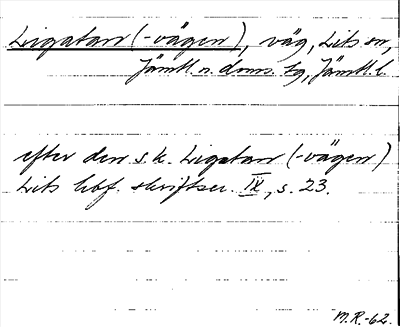 Ligatan (-vägen), väg, Lits sn,
Jämtl. n. doms. tg, Jämtl. l.
efter den s.k. Ligatan (-vägen)
Lits hbf. skriftser. IX, s. 23.
M.R.-62.